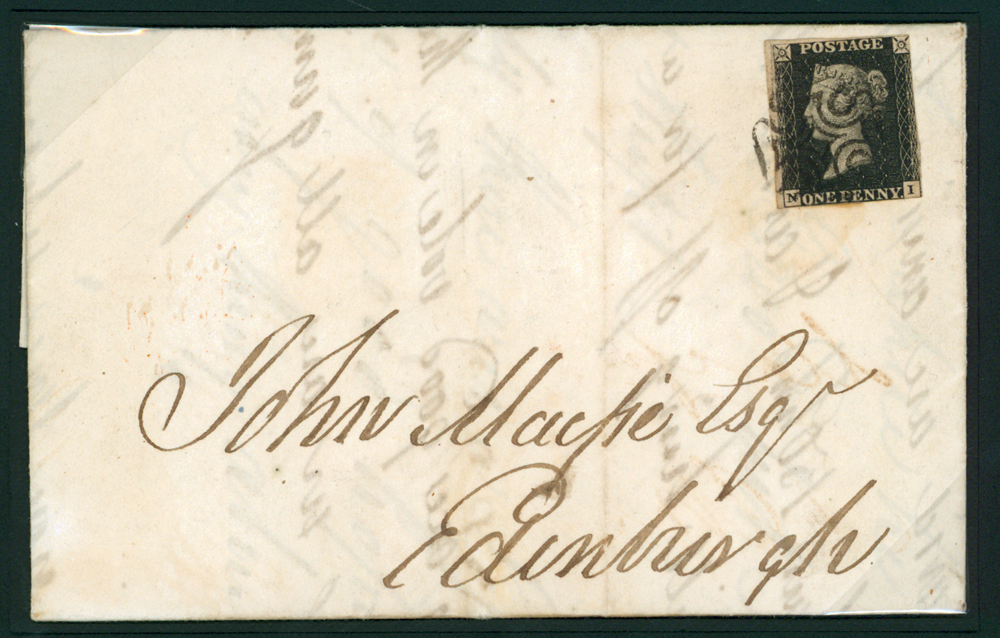 POSTAGE
N ONE PENNY. I
John Macfie Esqr
Edinburgh